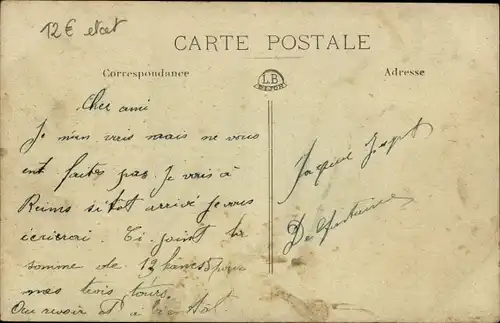 12€ etat
CARTE POSTALE
Correspondance
L.B
DIJON
Adresse
Cher ami
Je m'en vais mais ne vous
ent faites pas. Je vais à
Reims sitôt arrivé je vous
écrierai. Ci-joint la
somme de 12 pour
mes trois tours.
Au revoir et à
Jaquie